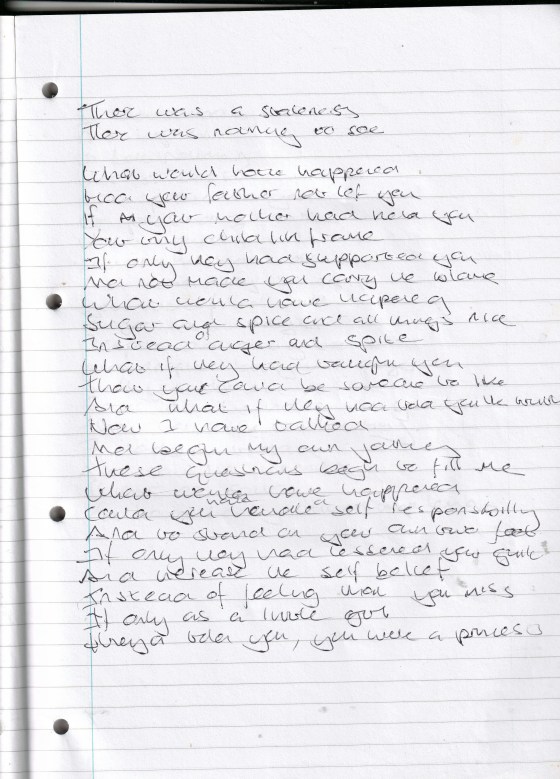 There was a staleness
There was nothing to see
What would have happened
Had your father not left you
If your mother had held you
Your tiny child frame
If only they had supported you
And not made you carry the blame
What would have happened
Sugar and spice and all things nice
Instead of anger and spite
What if they had taught you
That you could be someone to like
And what if they had told you the truth
Now I have talked
And begin my own journey
These questions begin to fill me
What would have happened
Could you have handled self responsibility
And to stand on your own two feet
If only they had lessened your guilt
And increase the self belief
Instead of feeling that you miss
If only as a little girl
They'd told you, you were a princess